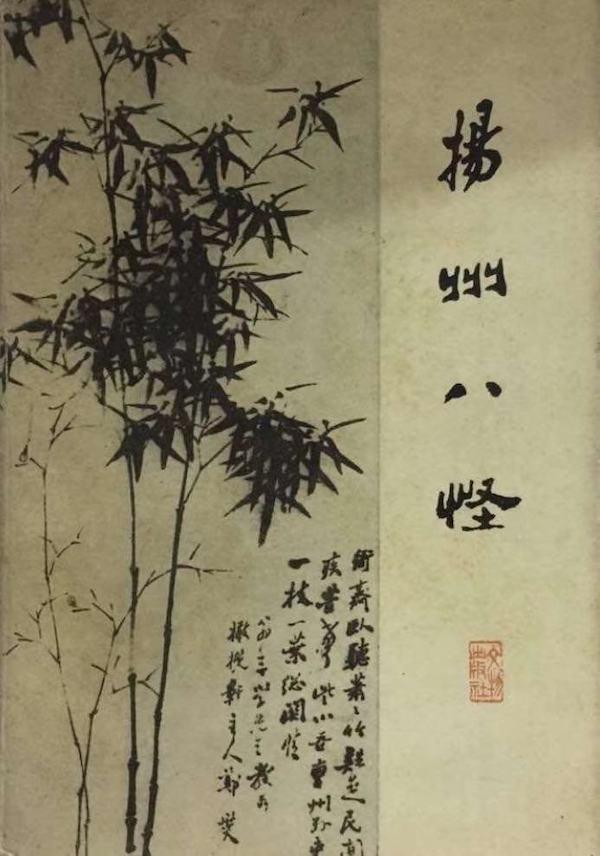 揚州八怪
文物
出版社
衙齋臥聽蕭〻竹疑是民間
疾苦聲些小吾曹州縣吏
一枝一葉總關情
橄欖軒主人鄭燮